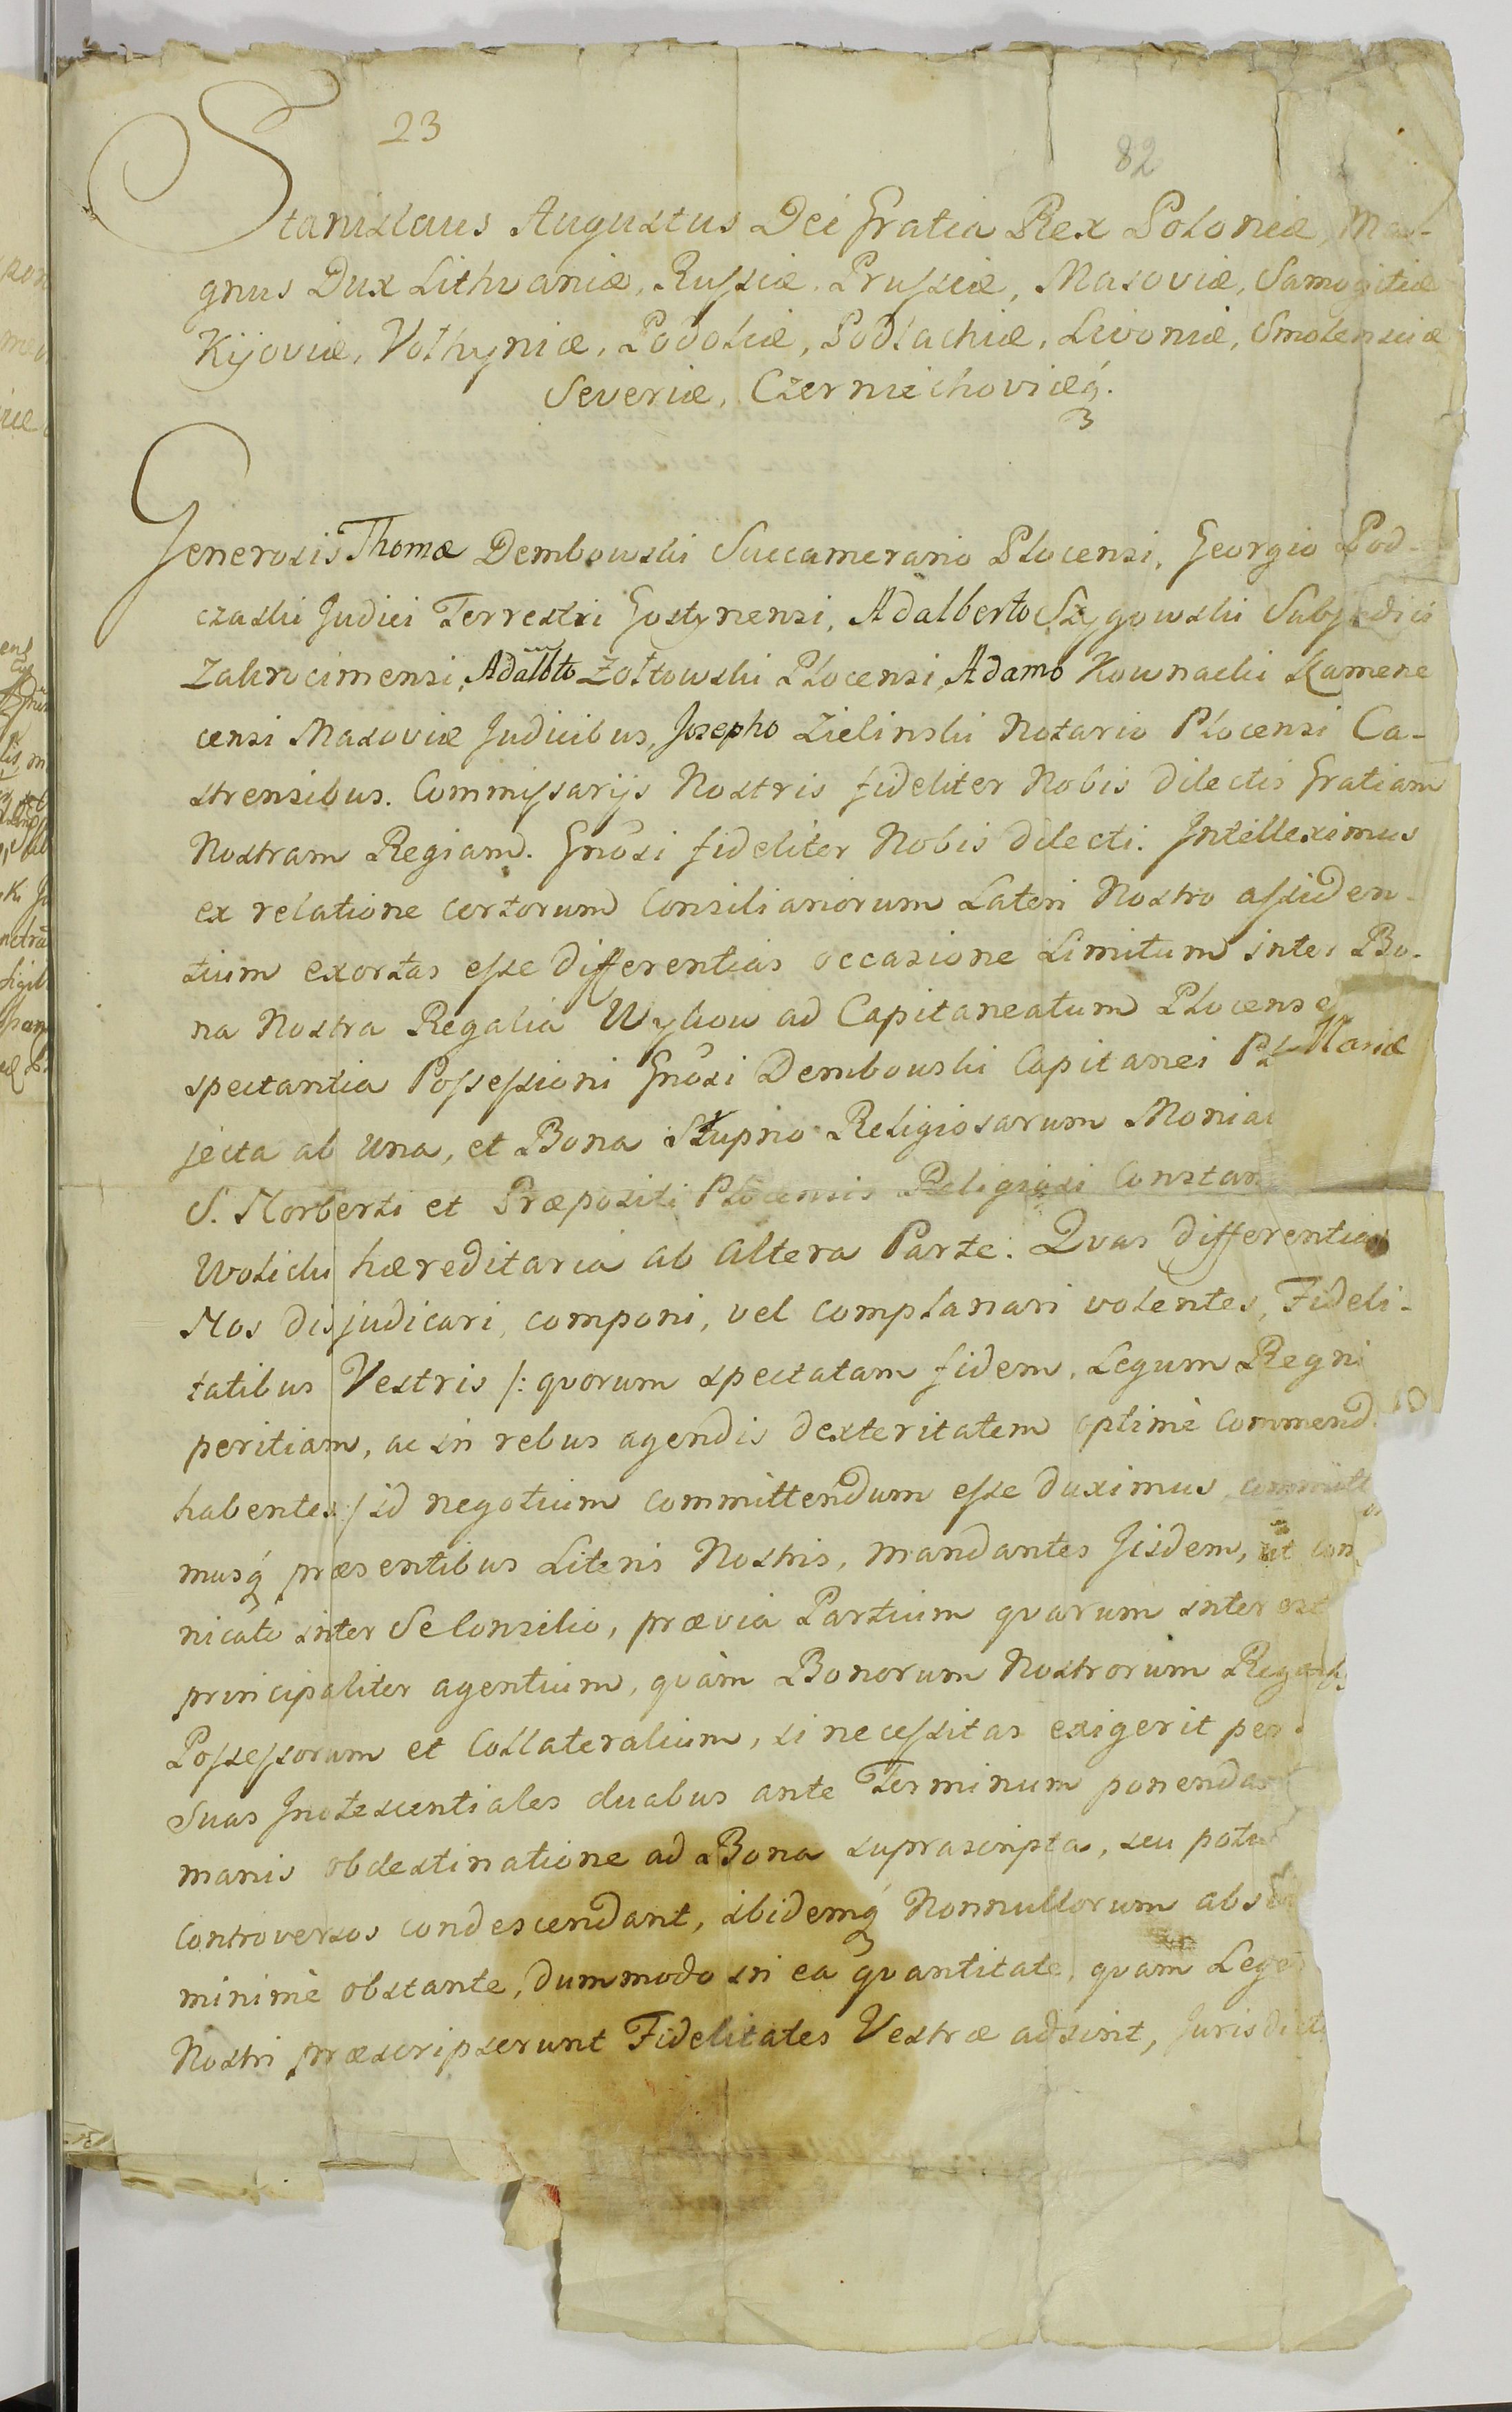 23
82
Stanislaus Augustus Dei Gratia Rex Poloniæ, Ma-
gnus Dux Lithvaniæ, Russiæ, Prussiæ, Masoviæ, Samogitiæ
Kijoviæ, Volhyniæ, Podoliæ, Podlachiæ, Livoniæ, Smolensciæ
Severiæ, Czerniechoviæq́.
Generosis Thomæ Dembowski Succamerario Plocensi, Georgio Pod-
czaski Judici Terrestri Gostynensi, Adalberto Szygowski Subjudici
Zakrocimensi, Adalbto Zołtowski Plocensi, Adamo Kownacki Kamene
censi Masoviæ Judicibus, Josepho Zielinski Notario Plocensi Ca-
strensibus. Commissarijs Nostris fideliter Nobis dilectis Gratiam
Nostram Regiam. Gnosi fideliter Nobis dilecti. Intelleximus
ex relatione certorum Consiliariorum Lateri Nostro assiden-
tium exortas esse differentias occasione Limitum inter Bo-
na Nostra Regalia Wykow ad Capitaneatum Plocense
spectantia Possessioni Gnosi Dembowski Capitanei
jecta ab una, et Bona Słupno Religiosarum Monia
S. Norberti et Præpositi Plocensis Religiosi Constan
Wolicki hæreditaria ab altera Parte. Qvas differentias
Nos disjudicari, componi, vel complanari volentes, Fideli-
tatibus Vestris /: qvorum spectatam fidem, Legum Regni
peritiam, ac in rebus agendis dexteritatem optimè Commend
habentes :/ id negotium committendum esse duximus, committ
musq́ præsentibus Literis Nostris, mandantes Jisdem, ut con
nicato inter Se Consilio, prævia Partium qvarum interest
principaliter agentium, qvàm Bonorum Nostrorum Regal
Possessorum et Collateralium, si necessitas exigerit per
Suas Jnotescentiales duabus ante Terminum ponendas
manis obdestinatione ad Bona suprascripta, seu potu
controversos condescendant, ibidemq́ Nonnullorum abse
minimè obstante, dummodo in ea qvantitate, qvam Lege
Nostri præscripserunt Fidelitates Vestræ adsint, Jurisdict